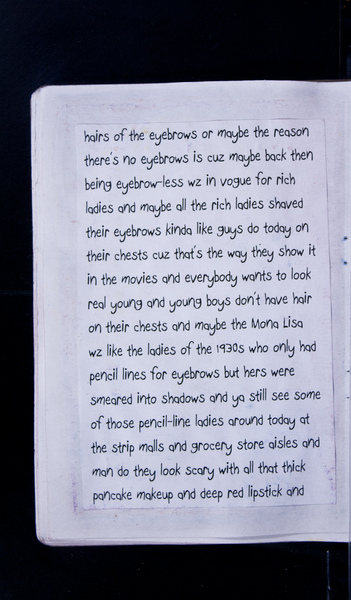 hairs of the eyebrows or maybe the reason
there's no eyebrows is cuz maybe back then
being eyebrow-less wz in vogue for rich
ladies and maybe all the rich ladies shaved
their eyebrows kinda like guys do today on
their chests cuz that's the way they show it
in the movies and everybody wants to look
real young and young boys don't have hair
on their chests and maybe the Mona Lisa
wz like the ladies of the 1930s who only had
pencil lines for eyebrows but hers were
smeared into shadows and ya still see some
of those pencil-line ladies around today at
the strip malls and grocery store aisles and
man do they look scary with all that thick
pancake makeup and deep red lipstick and